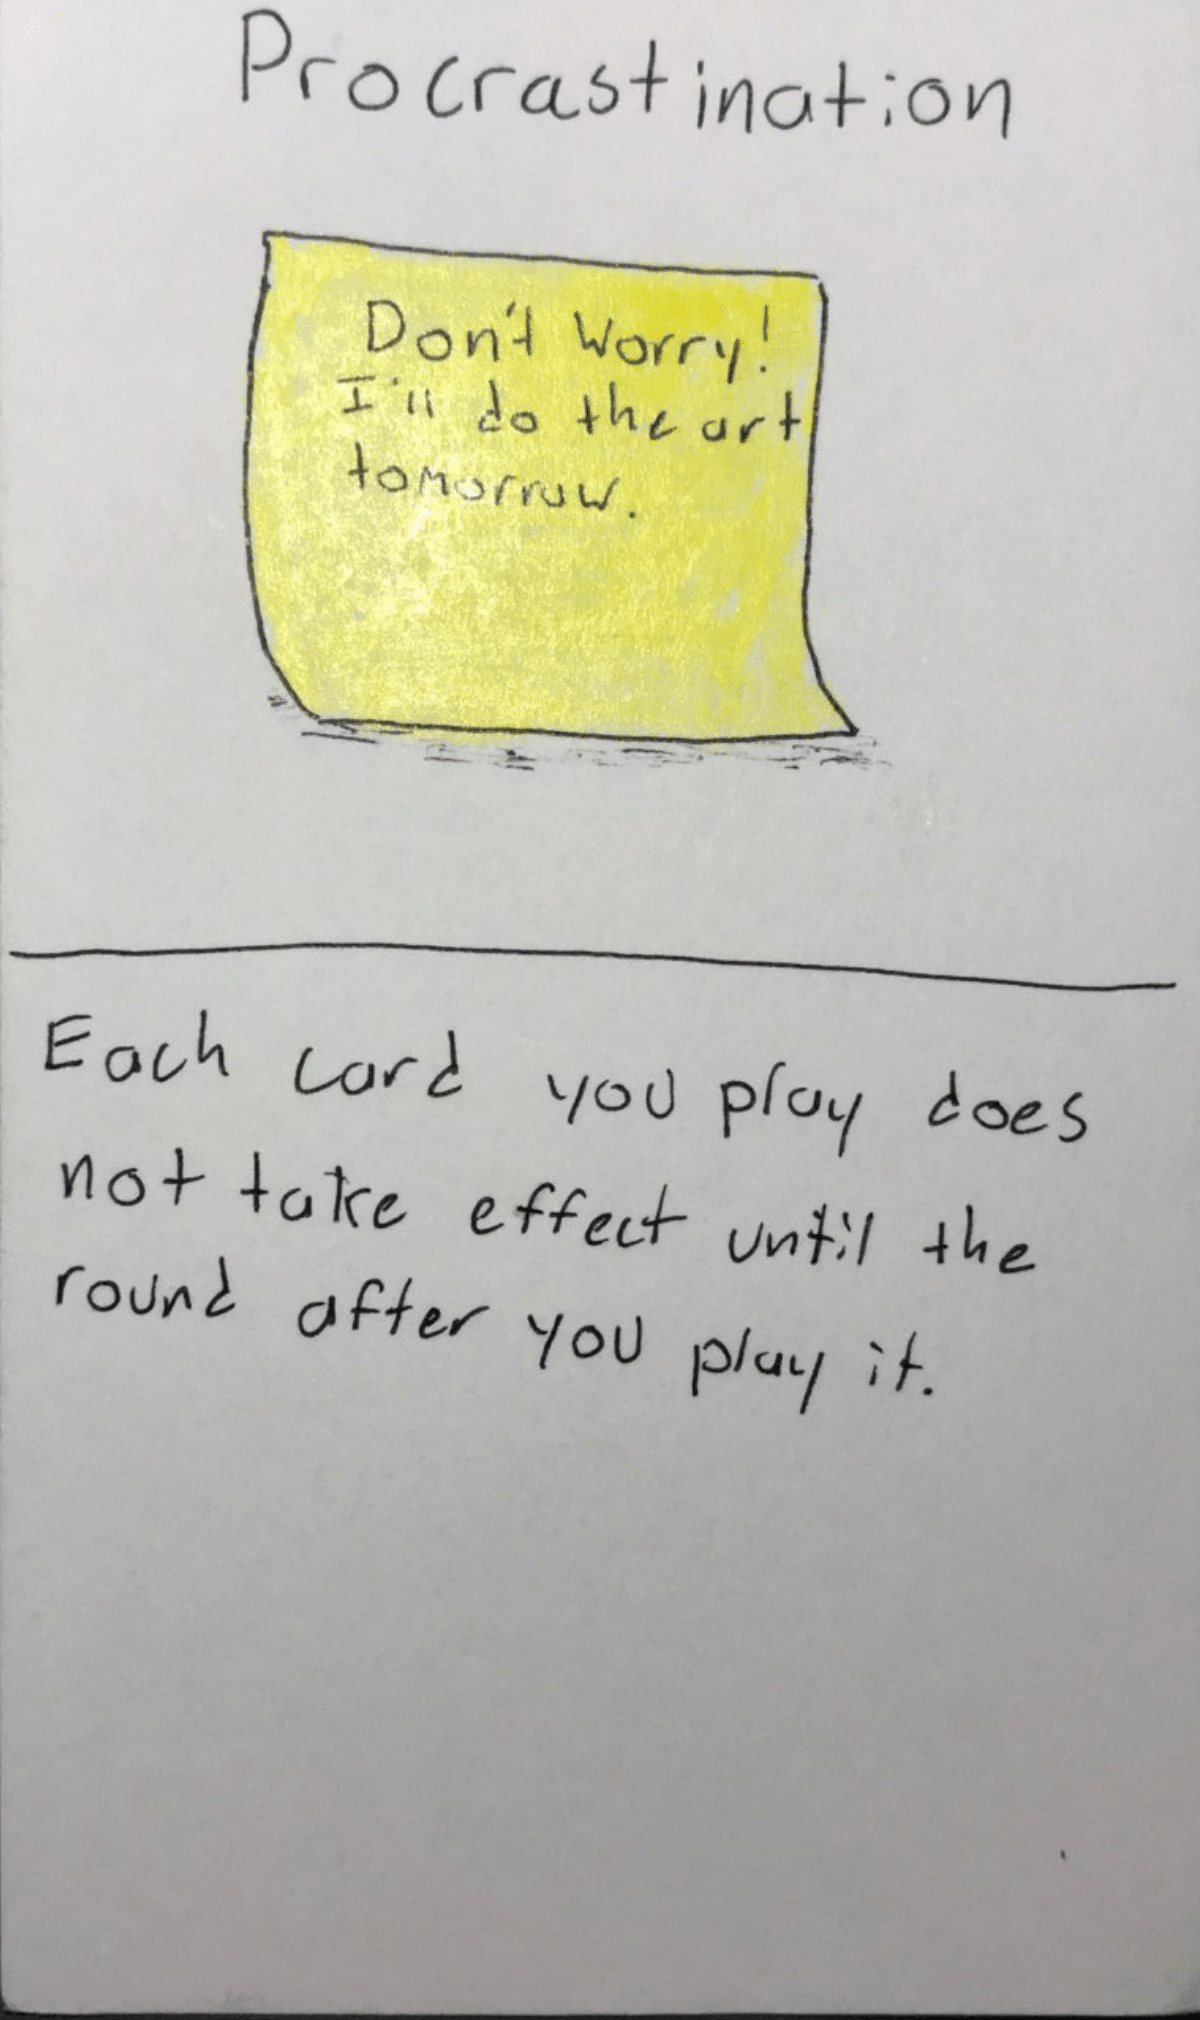 Procrastination
Don't Worry!
I'll do the art
tomorrow.
Each card you play does
not take effect until the
round after you play it.